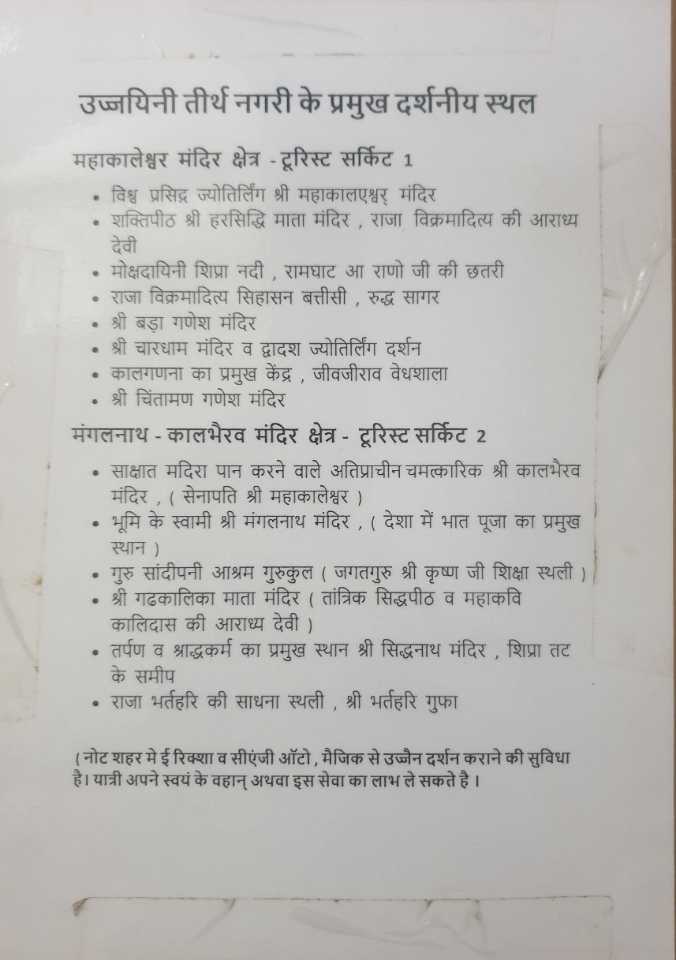 उज्जयिनी तीर्थ नगरी के प्रमुख दर्शनीय स्थल
महाकालेश्वर मंदिर क्षेत्र - टूरिस्ट सर्किट 1
• विश्व प्रसिद्र ज्योतिर्लिंग श्री महाकालएश्वर् मंदिर
• शक्तिपीठ श्री हरसिद्धि माता मंदिर , राजा विक्रमादित्य की आराध्य
देवी
• मोक्षदायिनी शिप्रा नदी , रामघाट आ राणो जी की छतरी
• राजा विक्रमादित्य सिहासन बत्तीसी , रुद्ध सागर
• श्री बड़ा गणेश मंदिर
• श्री चारधाम मंदिर व द्वादश ज्योतिर्लिंग दर्शन
• कालगणना का प्रमुख केंद्र , जीवजीराव वेधशाला
• श्री चिंतामण गणेश मंदिर
मंगलनाथ - कालभैरव मंदिर क्षेत्र - टूरिस्ट सर्किट 2
• साक्षात मदिरा पान करने वाले अतिप्राचीन चमत्कारिक श्री कालभैरव
मंदिर , ( सेनापति श्री महाकालेश्वर )
• भूमि के स्वामी श्री मंगलनाथ मंदिर , ( देशा में भात पूजा का प्रमुख
स्थान )
• गुरु सांदीपनी आश्रम गुरुकुल ( जगतगुरु श्री कृष्ण जी शिक्षा स्थली )
• श्री गढकालिका माता मंदिर ( तांत्रिक सिद्धपीठ व महाकवि
कालिदास की आराध्य देवी )
• तर्पण व श्राद्धकर्म का प्रमुख स्थान श्री सिद्धनाथ मंदिर , शिप्रा तट
के समीप
• राजा भर्तहरि की साधना स्थली , श्री भर्तहरि गुफा
( नोट शहर मे ई रिक्शा व सीएंजी ऑटो , मैजिक से उज्जैन दर्शन कराने की सुविधा
है। यात्री अपने स्वयं के वहान् अथवा इस सेवा का लाभ ले सकते है ।